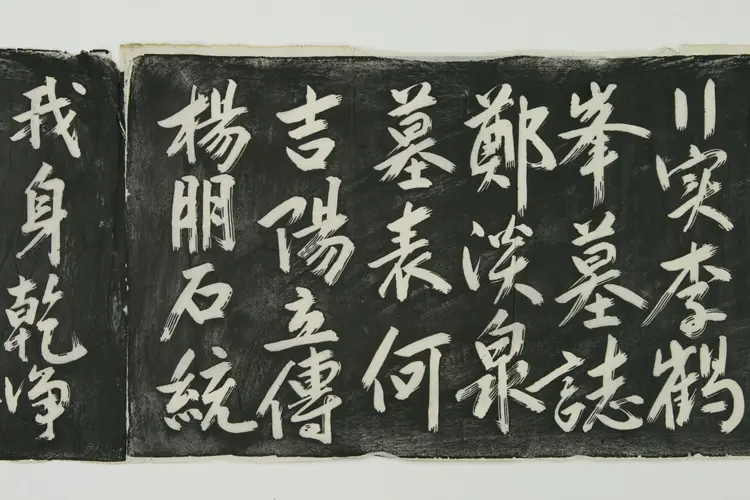 实李鶴
峯墓誌
鄭淡泉
墓表何
吉陽立傳
楊朋石統
我身乾净